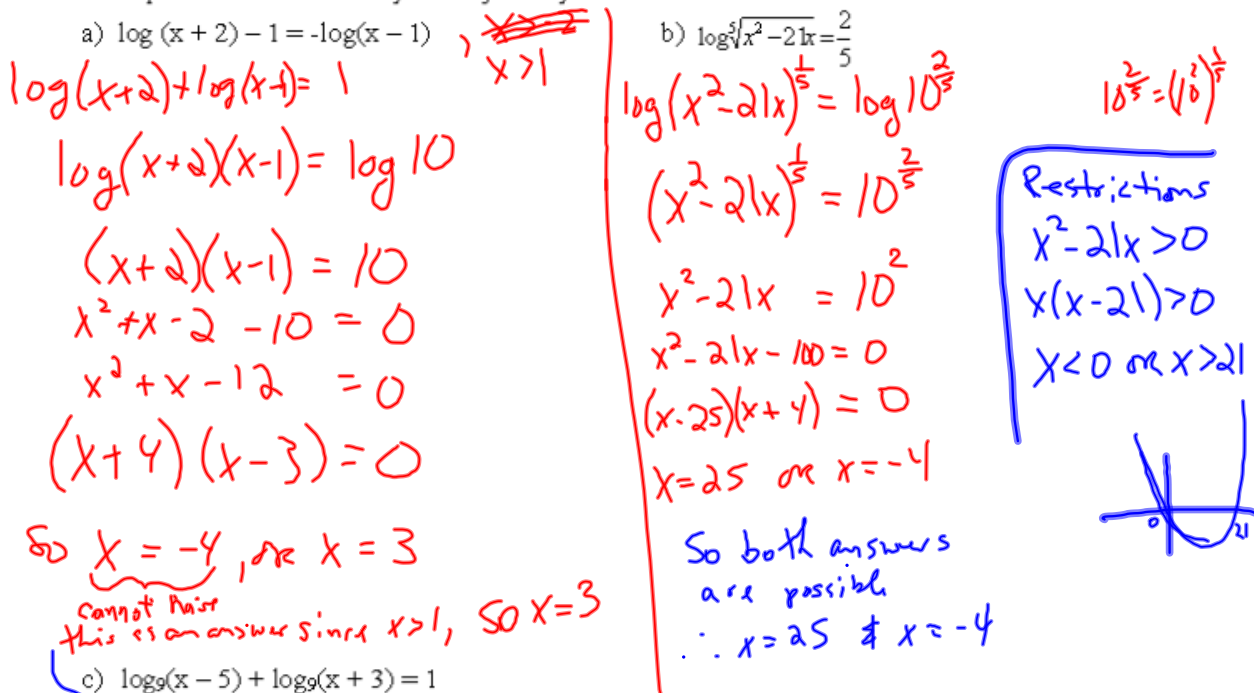 a) log (x + 2) – 1 = -log(x – 1) , x>-2
x>1
log(x+2)+log(x-1)= 1
log(x+2)(x-1)= log 10
(x+2)(x-1) = 10
x²+x-2-10 = 0
x²+x-12 = 0
(x+4)(x-3)=0
So x = -4, or x = 3
cannot have
this as an answer since x>1, so x=3
c) log₉(x – 5) + log₉(x + 3) = 1
b) log⁵√x² – 21x = 2/5
log(x²-21x)^(1/5) = log 10^(2/5)
10^(2/5) = (10²)^(1/5)
(x²-21x)^(1/5) = 10^(2/5)
x²-21x = 10²
x²-21x-100=0
(x-25)(x+4) = 0
x=25 or x=-4
So both answers
are possible
∴ x=25 & x=-4
Restrictions
x²-21x>0
x(x-21)>0
x<0 or x>21
0 21